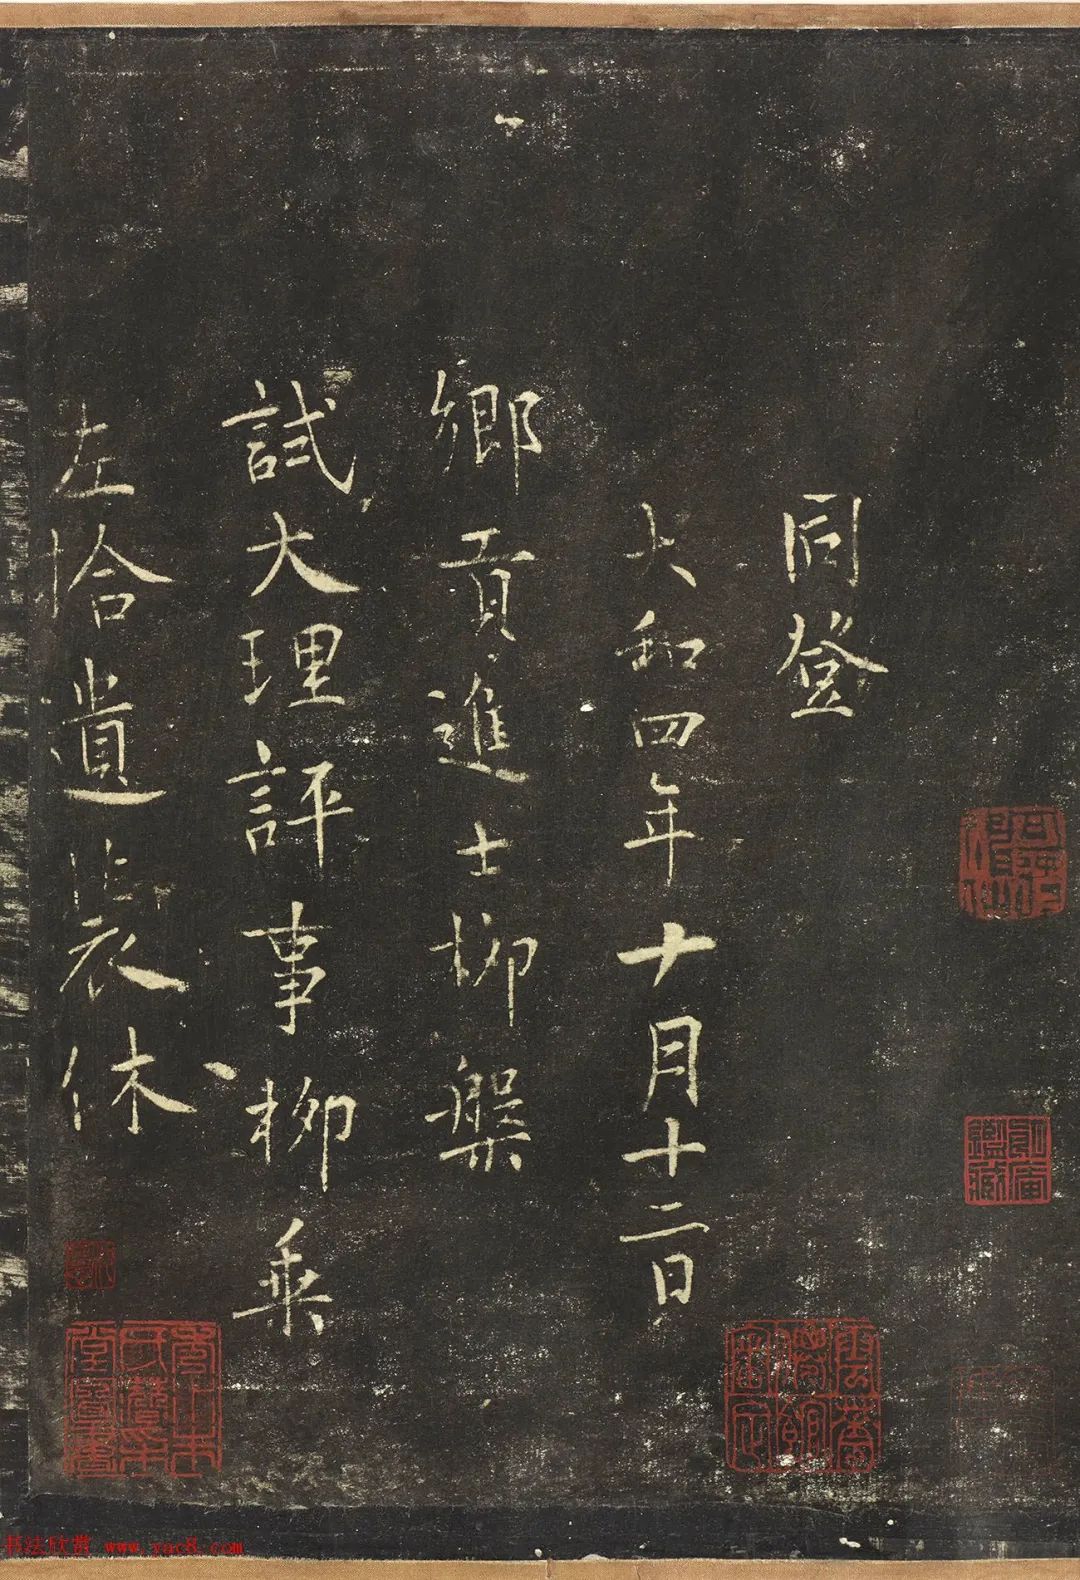 同登
大和四年十月十二日
鄉貢進士柳槃
試大理評事柳乘
左拾遺裴休
鑑藏
书法欣赏 www.yac8.com